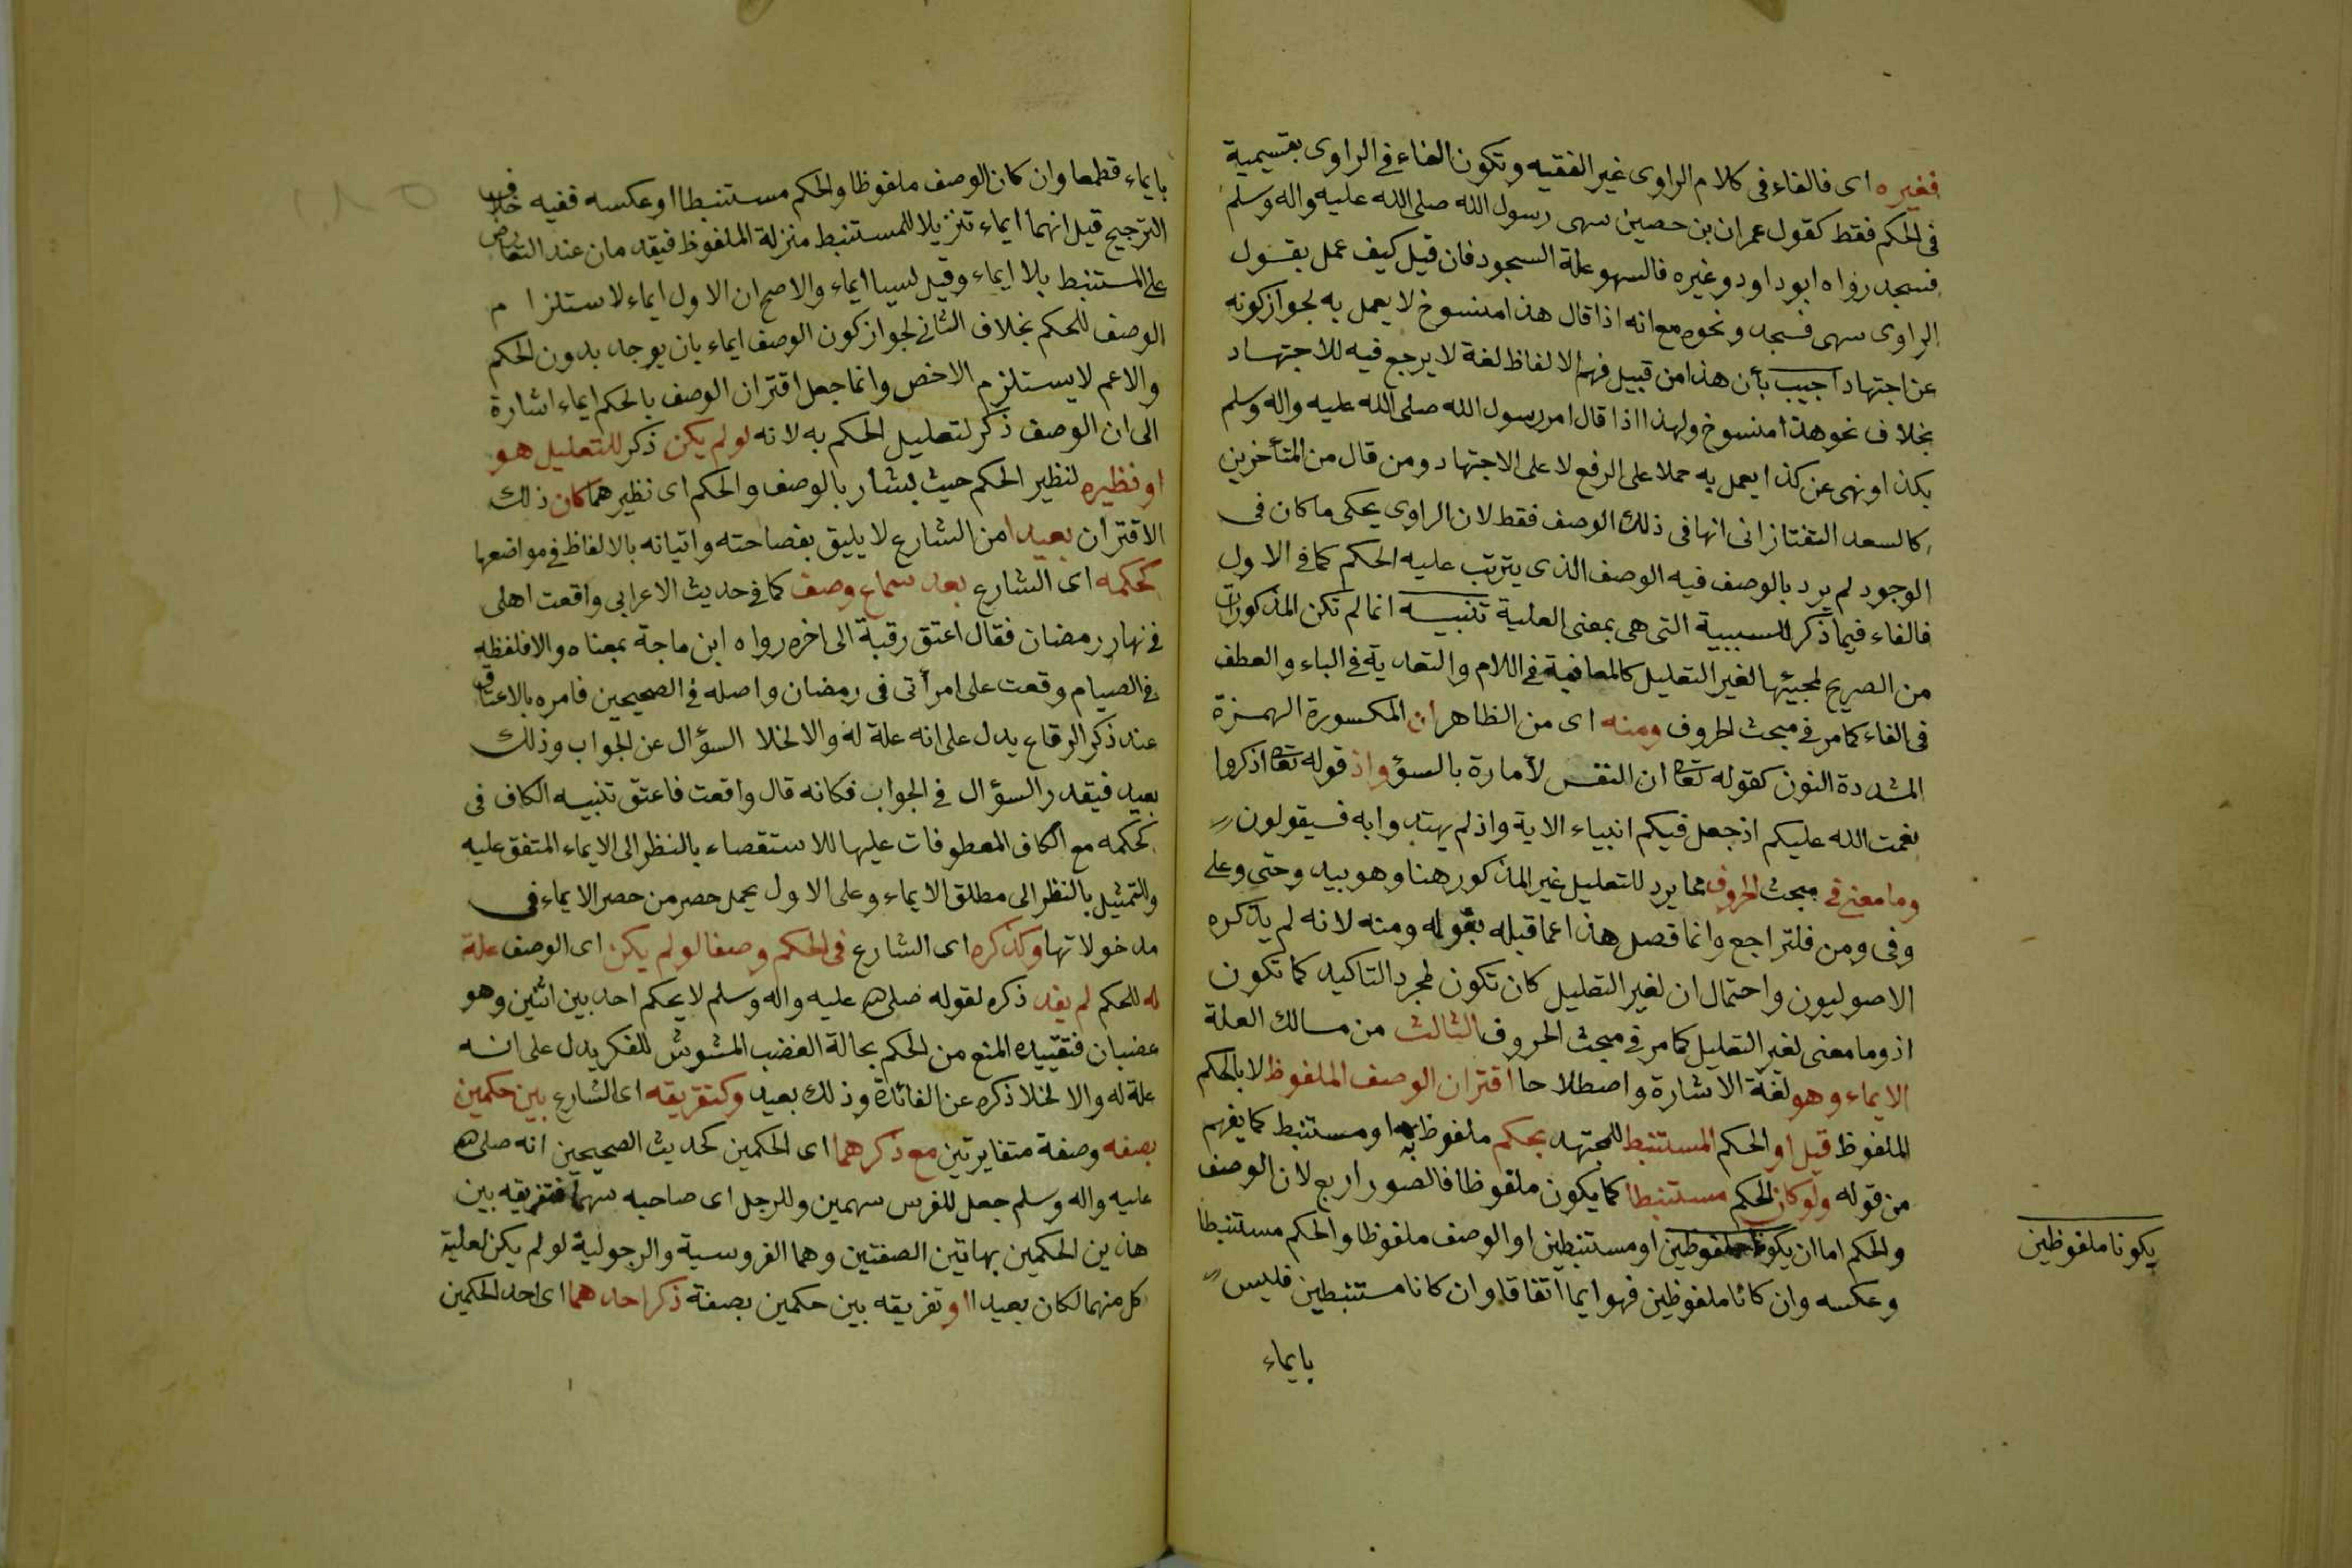 فغيره اى فالفاء فى كلام الراوى غير الفقيه وتكون الفاء فى الراوى بقسيميه
فى الحكم فقط كقول عمران بن حصين سهى رسول الله صلى الله عليه واله وسلم
فسجد رواه ابو داود وغيره فالسهو علة السجود فان قيل كيف عمل بقول
الراوى سهى فسجد ونحوه مع انه اذا قال هذا منسوخ لا يعمل به لجواز كونه
عن اجتهاد اجيب بأن هذا من قبيل فهم الالفاظ لغة لا يرجع فيه للاجتهاد
بخلاف نحو هذا منسوخ ولهذا اذا قال امر رسول الله صلى الله عليه واله وسلم
بكذا ونهى عن كذا يعمل به حملا على الرفع لا على الاجتهاد ومن قال من المتأخرين
كالسعد التفتازانى انها فى ذلك الوصف فقط لان الراوى يحكى ما كان فى
الوجود لم يرد بالوصف فيه الوصف الذى يترتب عليه الحكم كما فى الاول
فالفاء فيما ذكر للسببية التى هى بمعنى العلية تنبيه انما لم تكن المذكورات
من الصريح لمجيئها لغير التعليل كالعاقبة فى اللام والتعدية فى الباء والعطف
فى الفاء كما مر فى مبحث الحروف ومنه اى من الظاهر ان المكسورة الهمزة
المشددة النون كقوله تعا ان النفس لأمارة بالسوؤ واذ قوله تعا اذكروا
نعمت الله عليكم اذ جعل فيكم انبياء الاية واذ لم يهتدوا به فسيقولون
وما مضى فى مبحث الحروف مما يرد للتعليل غير المذكور هنا وهو بيد وحتى وعلى
وفى ومن فلتراجع وانما فصل هذا عما قبله بقوله ومنه لانه لم يذكره
الاصوليون واحتمال ان لغير التعليل كان تكون لمجرد التاكيد كما تكون
اذ وما معنى لغير التعليل كما مر فى مبحث الحروف الثالث من مسالك العلة
الايماء وهو لغة الاشارة واصطلاحا اقتران الوصف الملفوظ لا بالحكم
الملفوظ قيل او الحكم المستنبط للمجتهد بحكم ملفوظ به او مستنبط كما يفهم
من قوله ولو كان الحكم مستنبطا كما يكون ملفوظا فالصور اربع لان الوصف
والحكم اما ان يكونا ملفوظين او مستنبطين او الوصف ملفوظا والحكم مستنبطا
وعكسه وان كانا ملفوظين فهو ايما اتفاقا وان كانا مستنبطين فليس
بايماء
يكونا ملفوظين
بايماء قطعا وان كان الوصف ملفوظا والحكم مستنبطا او عكسه ففيه خلاف
الترجيح قيل انهما ايماء تنزيلا للمستنبط منزلة الملفوظ فيقدمان عند التعارض
على المستنبط بلا ايماء وقيل ليسا ايماء والاصح ان الاول ايماء لاستلزام
الوصف للحكم بخلاف الثانى لجواز كون الوصف ايماء بان يوجد بدون الحكم
والاعم لا يستلزم الاخص وانما جعل اقتران الوصف بالحكم ايماء اشارة
الى ان الوصف ذكر لتعليل الحكم به لانه لو لم يكن ذكر للتعليل هو
او نظيره لنظير الحكم حيث يشار بالوصف والحكم اى نظيرهما كان ذلك
الاقتران بعيدا من الشارع لا يليق بفصاحته واتيانه بالالفاظ فى مواضعها
كحكمه اى الشارع بعد سماع وصف كما فى حديث الاعرابى واقعت اهلى
فى نهار رمضان فقال اعتق رقبة الى اخره رواه ابن ماجة بمعناه والا فلفظه
فى الصيام وقعت على امرأتى فى رمضان واصله فى الصحيحين فامره بالاعتاق
عند ذكر الوقاع يدل على انه علة له والا لخلا السؤال عن الجواب وذلك
بعيد فيقدر السؤال فى الجواب فكانه قال واقعت فاعتق تنبيه الكاف فى
كحكمه مع الكاف المعطوفات عليها للاستقصاء بالنظر الى الايماء المتفق عليه
وللتمثيل بالنظر الى مطلق الايماء وعلى الاول يحمل حصر من حصر الايماء فى
مدخولاتها وكذكره اى الشارع فى الحكم وصفا لو لم يكن اى الوصف علة
له للحكم لم يفد ذكره لقوله صلى الله عليه واله وسلم لا يحكم احد بين اثنين وهو
غضبان فتقييده المنع من الحكم بحالة الغضب المشوش للفكر يدل على انه
علة له والا لخلا ذكره عن الفائدة وذلك بعيد وكتفريقه اى الشارع بين حكمين
بصفه وصفة متغايرتين مع ذكرهما اى الحكمين كحديث الصحيحين انه صلى الله
عليه واله وسلم جعل للفرس سهمين وللرجل اى صاحبه سهما فتفريقه بين
هاذين الحكمين بهاتين الصفتين وهما الفروسية والرجولية لو لم يكن لعلية
كل منهما لكان بعيدا او تفريقه بين حكمين بصفة ذكر احدهما اى احد الحكمين